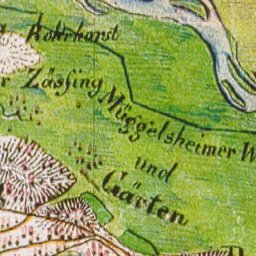 Rohrhorst
Zässing
Müggelsheimer W
und
Gärten